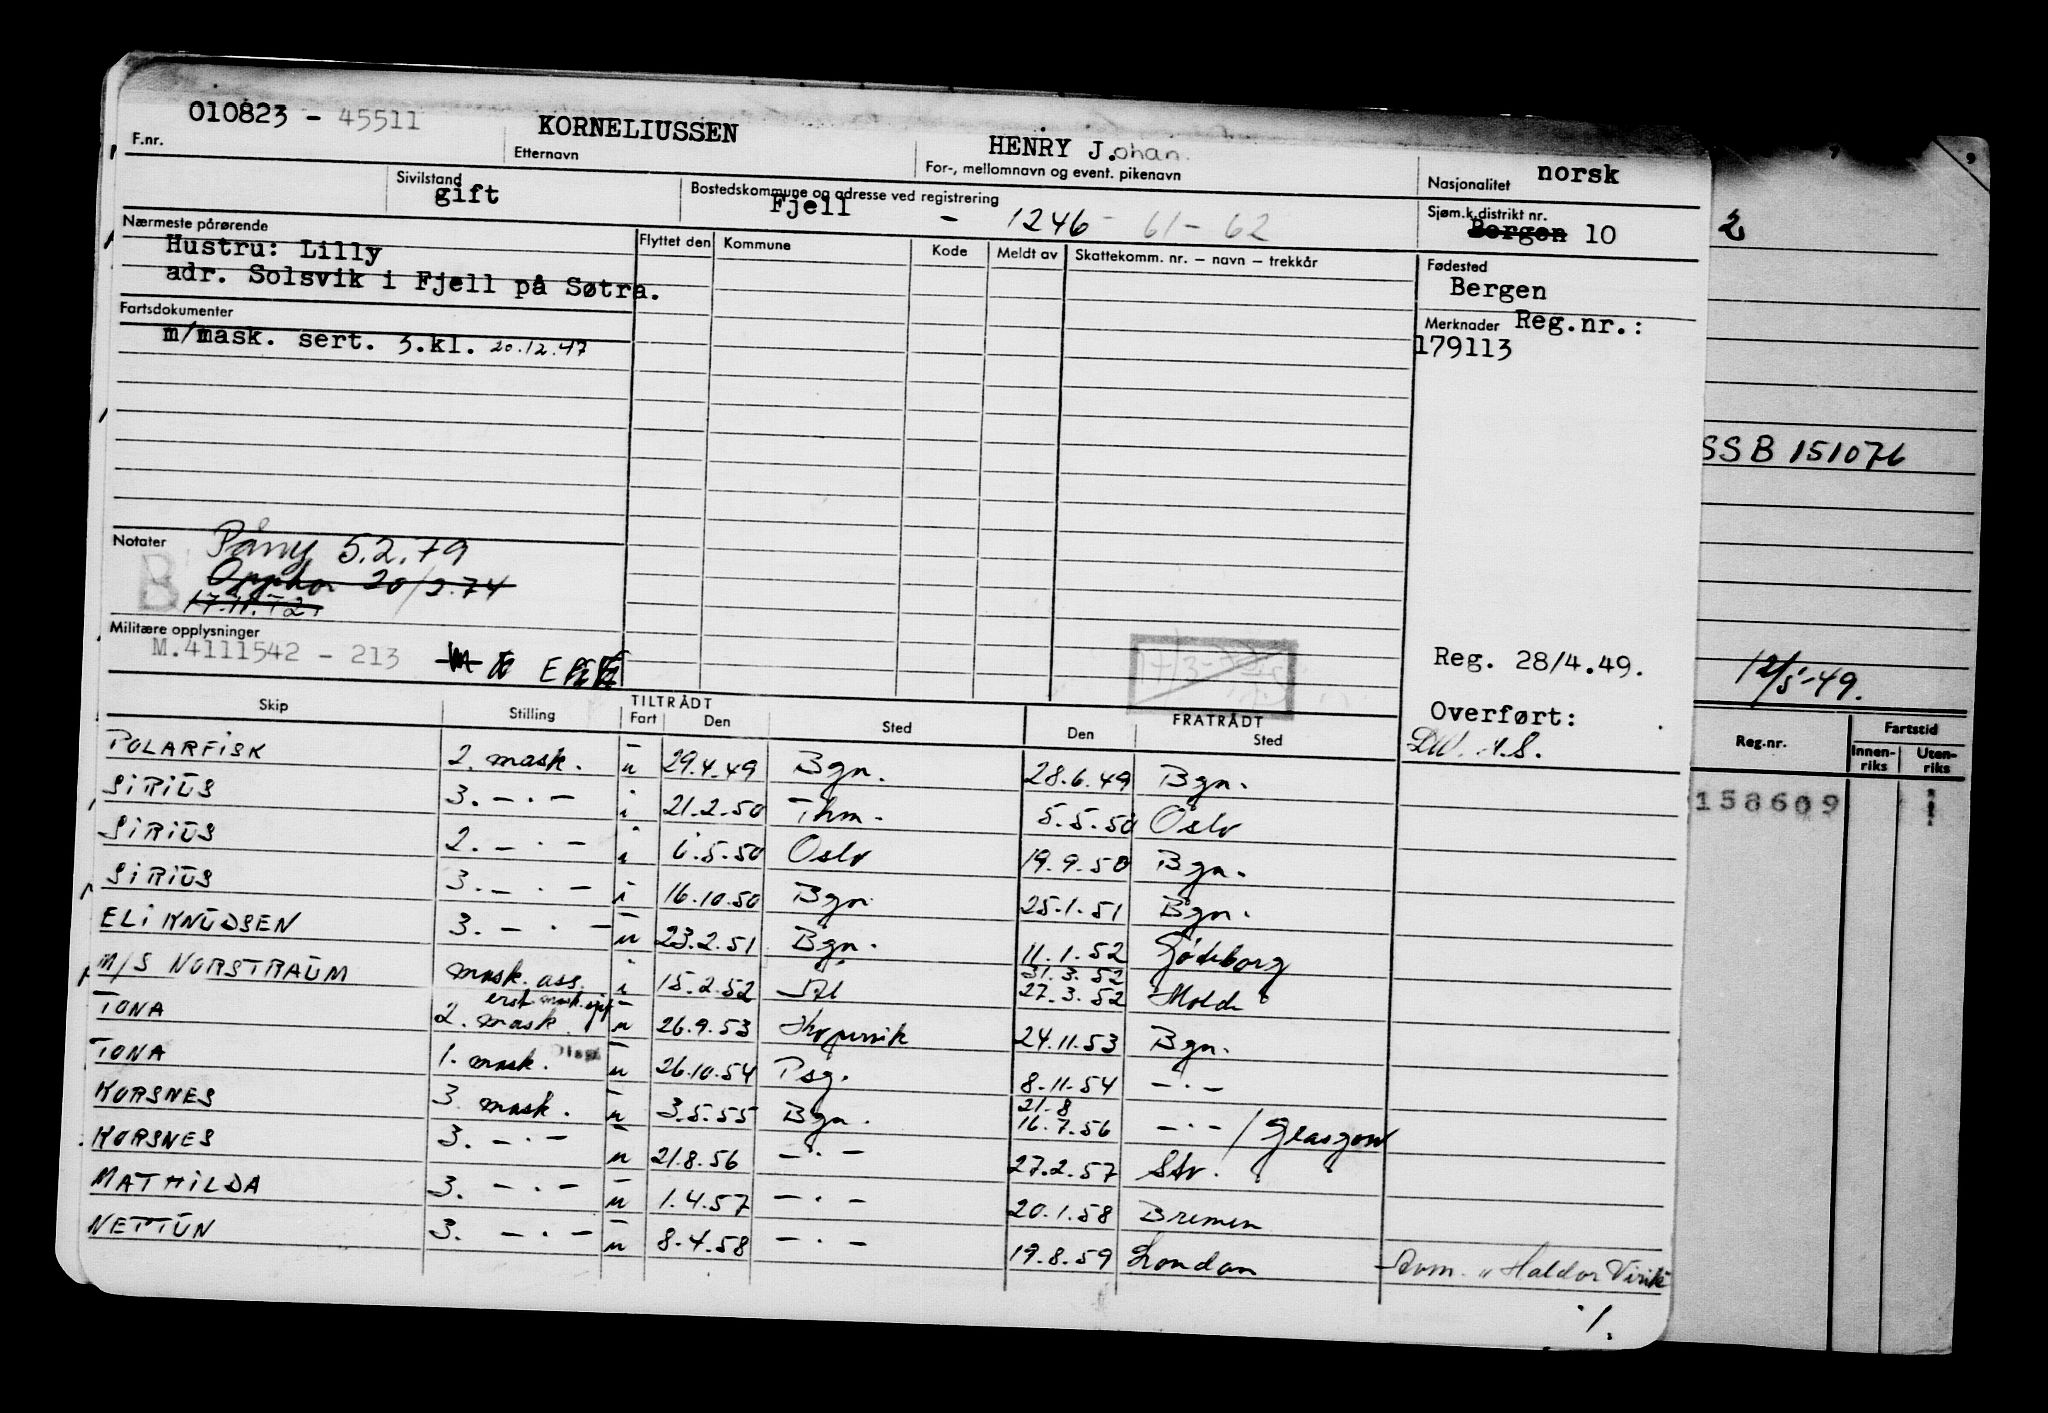 010823 - 45511 KORNELIUSSEN HENRY J.ohan. norsk
F.nr. Etternavn For-, mellomnavn og event. pikenavn Nasjonalitet
Sivilstand gift Bostedskommune og adresse ved registrering Fjell - 1246 - 61 - 62 Sjøm.k.distrikt nr. Bergen 10
Nærmeste pårørende Flyttet den Kommune Kode Meldt av Skattekomm. nr. – navn – trekkår Fødested
Hustru: Lilly Bergen
adr. Solsvik i Fjell på Søtra.
Fartsdokumenter Merknader Reg.nr.:
m/mask. sert. 3.kl. 20.12.47 179113
SSB 151076
2
Notater Påny 5.2.79
B
Opphør 20/2.74
17.11.72
Militære opplysninger
M.4111542 - 213
Reg. 28/4.49.
12/5-49.
Overført:
Skip Stilling TILTRÅDT Fart Den Sted FRATRÅDT Den Sted
Reg.nr. Fartstid Innen-riks Uten-riks
158609
POLARFISK 2. mask. u 29.4.49 Bgn. 28.6.49 Bgn.
SIRIUS 3. -·- i 21.2.50 Thm. 5.5.50 Oslo
SIRIUS 2. -·- i 6.5.50 Oslo 19.9.50 Bgn.
SIRIUS 3. -·- i 16.10.50 Bgn 25.1.51 Bgn.
ELI KNUDSEN 3. -·- u 23.2.51 Bgn. 11.1.52 Gøteborg
M/S NORSTRAUM mask. ass. i 15.2.52 31.3.52 27.3.52 Molde
TONA 2. mask. u 26.9.53 Kopervik 24.11.53 Bgn.
TONA 1. mask. u 26.10.54 Psg. 8.11.54 -·-
KORSNES 3. mask. u 3.5.55 Bgn. 21.8 16.7.56 -·- / Glasgow
KORSNES 3. -·- u 21.8.56 -·- 27.2.57 Stv.
MATHILDA 3. -·- u 1.4.57 -·- 20.1.58 Bremen
NETTUN 3. -·- u 8.4.58 -·- 19.8.59 London